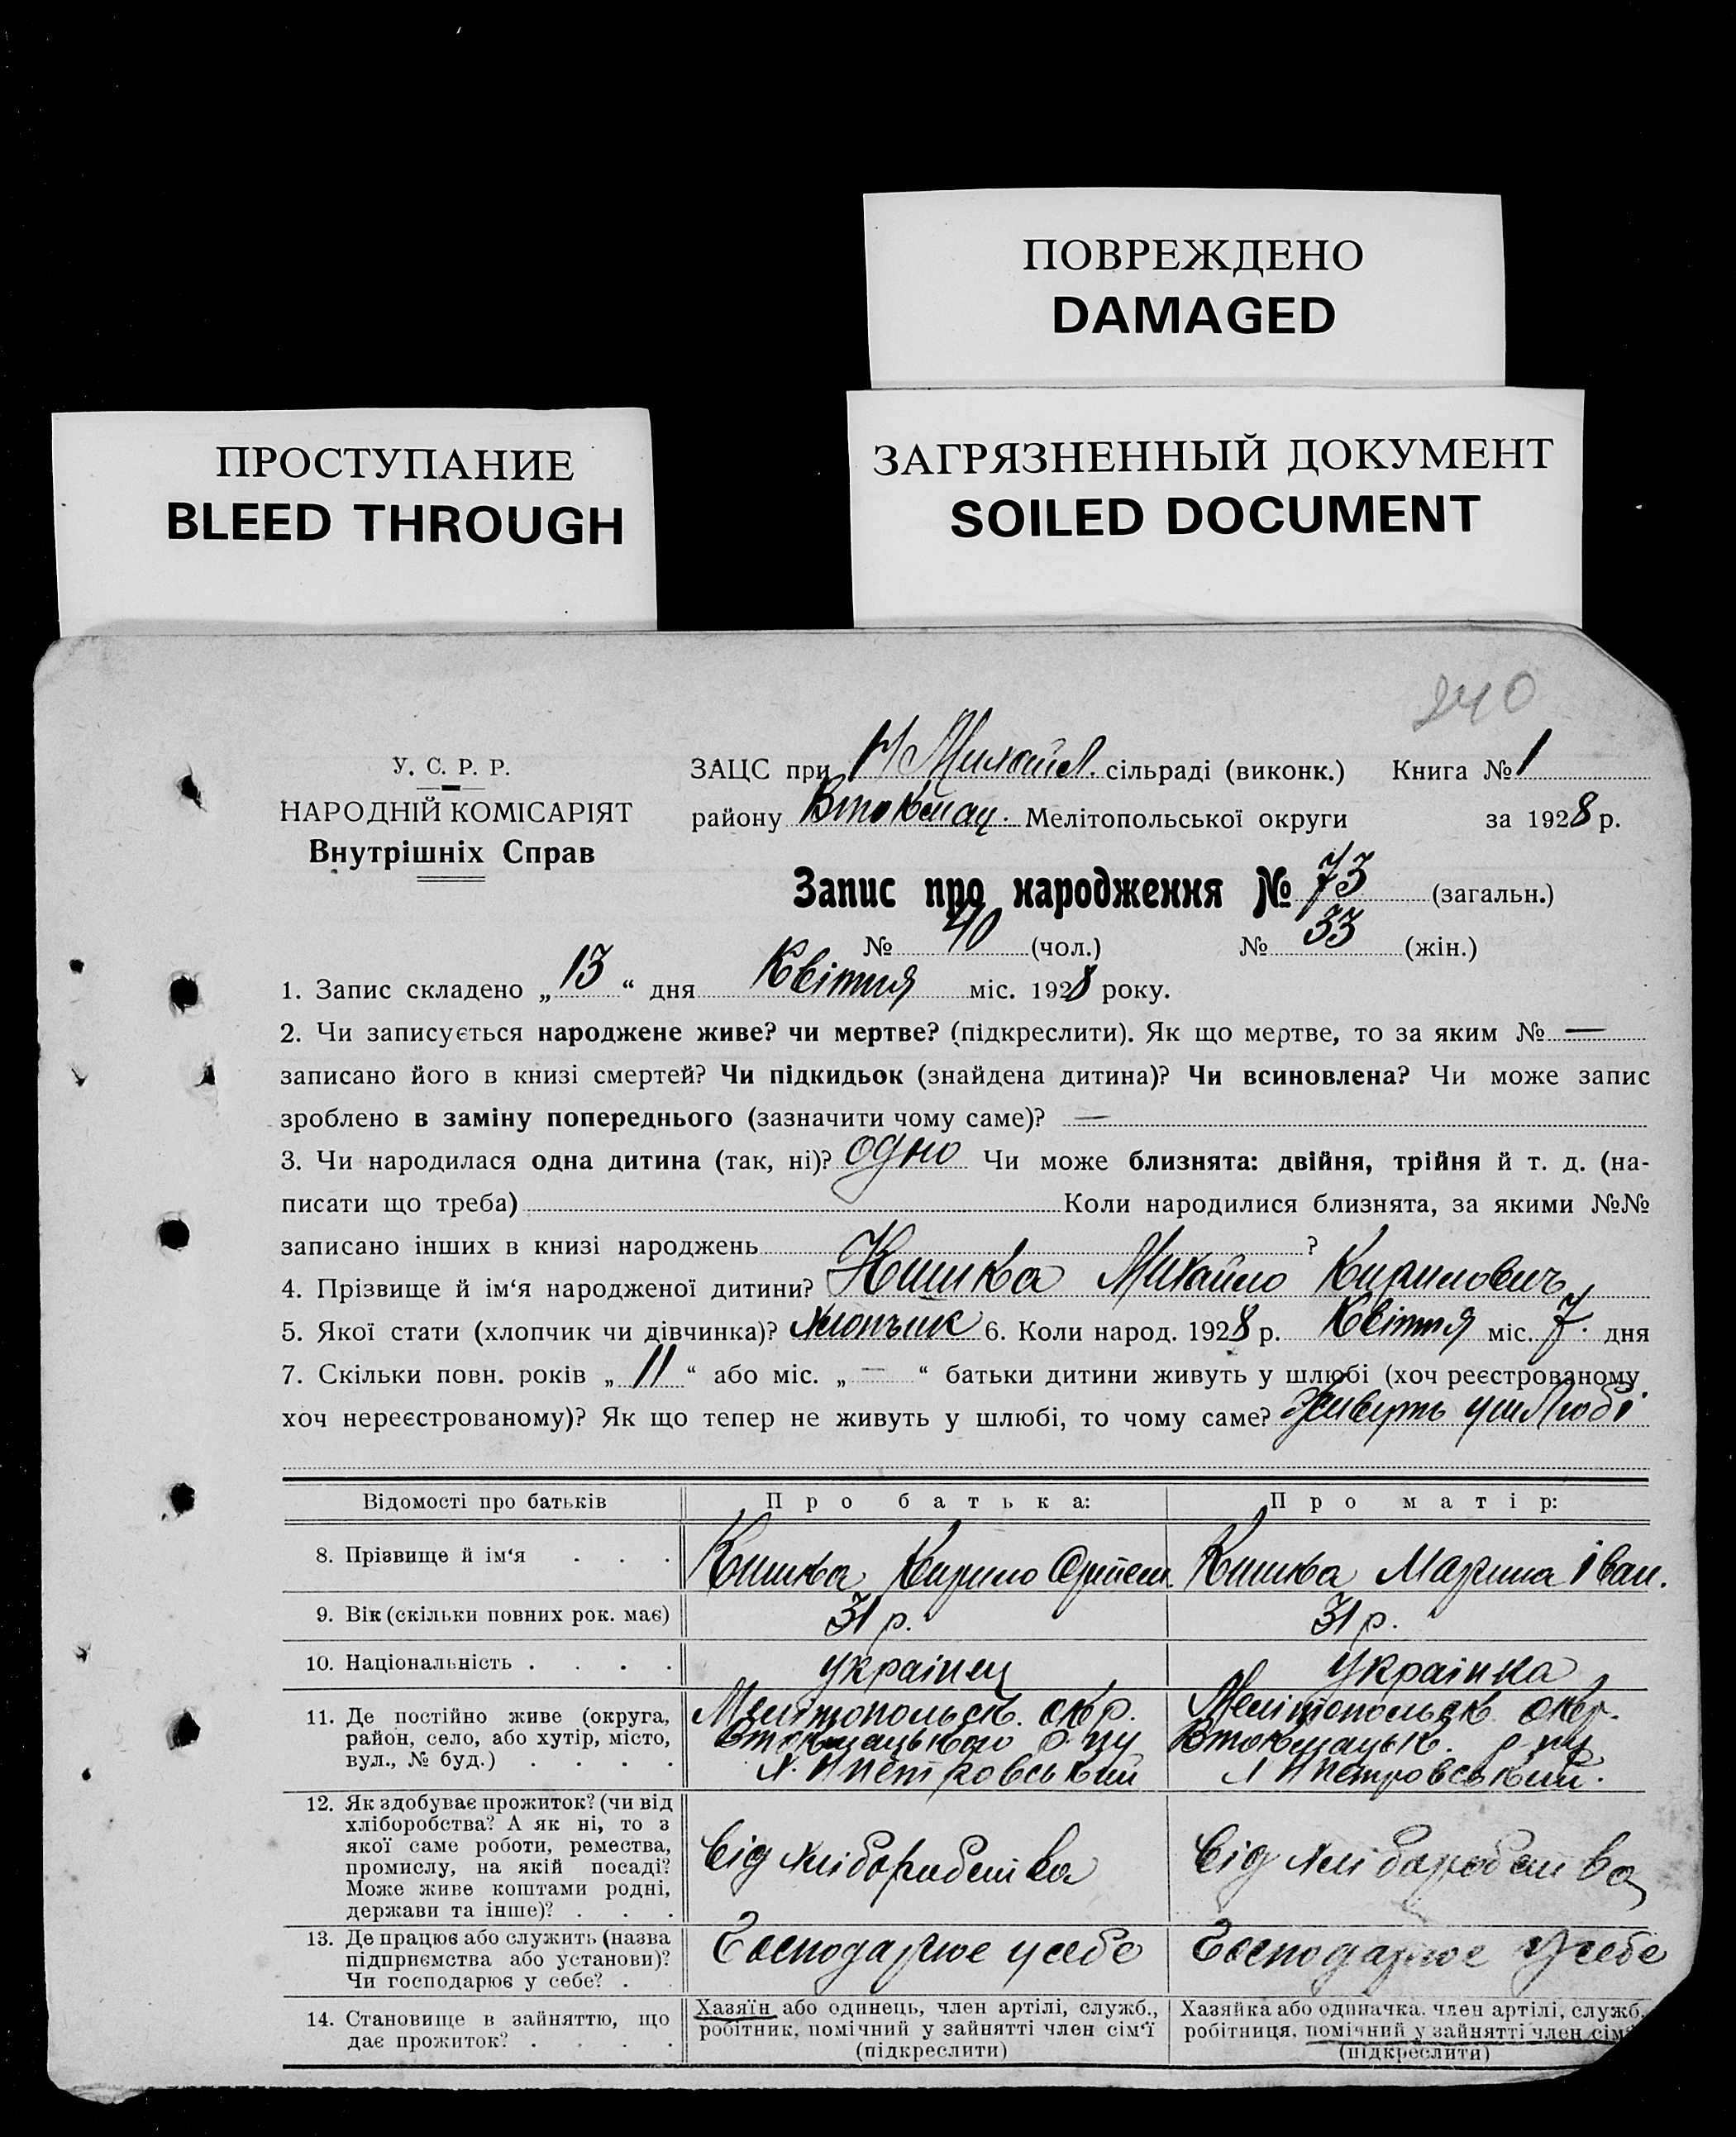 ПОВРЕЖДЕНО
DAMAGED
ПРОСТУПАНИЕ
BLEED THROUGH
ЗАГРЯЗНЕННЫЙ ДОКУМЕНТ
SOILED DOCUMENT
240
У. С. Р. Р.
НАРОДНІЙ КОМІСАРІЯТ
Внутрішніх Справ
ЗАЦС при Н Михайл. сільраді (виконк.) Книга № 1
району Втокмац. Мелітопольської округи за 1928 р.
Запис про народження № 73 (загальн.)
№ 40 (чол.) № 33 (жін.)
1. Запис складено „ 13 “ дня Квітня міс. 1928 року.
2. Чи записується народжене живе? чи мертве? (підкреслити). Як що мертве, то за яким № —
записано його в книзі смертей? Чи підкидьок (знайдена дитина)? Чи всиновлена? Чи може запис
зроблено в заміну попереднього (зазначити чому саме)? —
3. Чи народилася одна дитина (так, ні)? одно Чи може близнята: двійня, трійня й т. д. (на-
писати що треба) Коли народилися близнята, за якими №№
записано інших в книзі народжень ?
4. Прізвище й ім‘я народженої дитини? Кишка Михайло Кирилович
5. Якої стати (хлопчик чи дівчинка)? хлопчик 6. Коли народ. 1928 р. Квітня міс. 7. дня
7. Скільки повн. років „ 11 “ або міс. „ — “ батьки дитини живуть у шлюбі (хоч реєстрованому
хоч нереєстрованому)? Як що тепер не живуть у шлюбі, то чому саме? Живуть ушлюбі
Відомості про батьків Про батька: Про матір:
8. Прізвище й ім‘я . . . Кишка Кирило Артем. Кишка Марина Іван.
9. Вік (скільки повних рок. має) 31 р. 31 р.
10. Національність . . . . українец українка
11. Де постійно живе (округа,
район, село, або хутір, місто,
вул., № буд.) . . . .
Мелітопольськ. окр.
Втокмацького р ну
Мелітопольськ окр.
Втокмацьк. р ну
12. Як здобуває прожиток? (чи від
хліборобства? А як ні, то з
якої саме роботи, ремества,
промислу, на якій посаді?
Може живе коштами родні,
держави та інше)? . . .
Від хліборобства Від хліборобства
13. Де працює або служить (назва
підприємства або установи)?
Чи господарює у себе? .
Господарює усебе Господарює усебе
14. Становище в зайняттю, що
дає прожиток? . . . .
Хазяїн або одинець, член артілі, служб.,
робітник, помічний у зайнятті член сім‘ї
(підкреслити)
Хазяйка або одиначка. член артілі, служб.
робітниця, помічний у зайнятті член сім‘
(підкреслити)